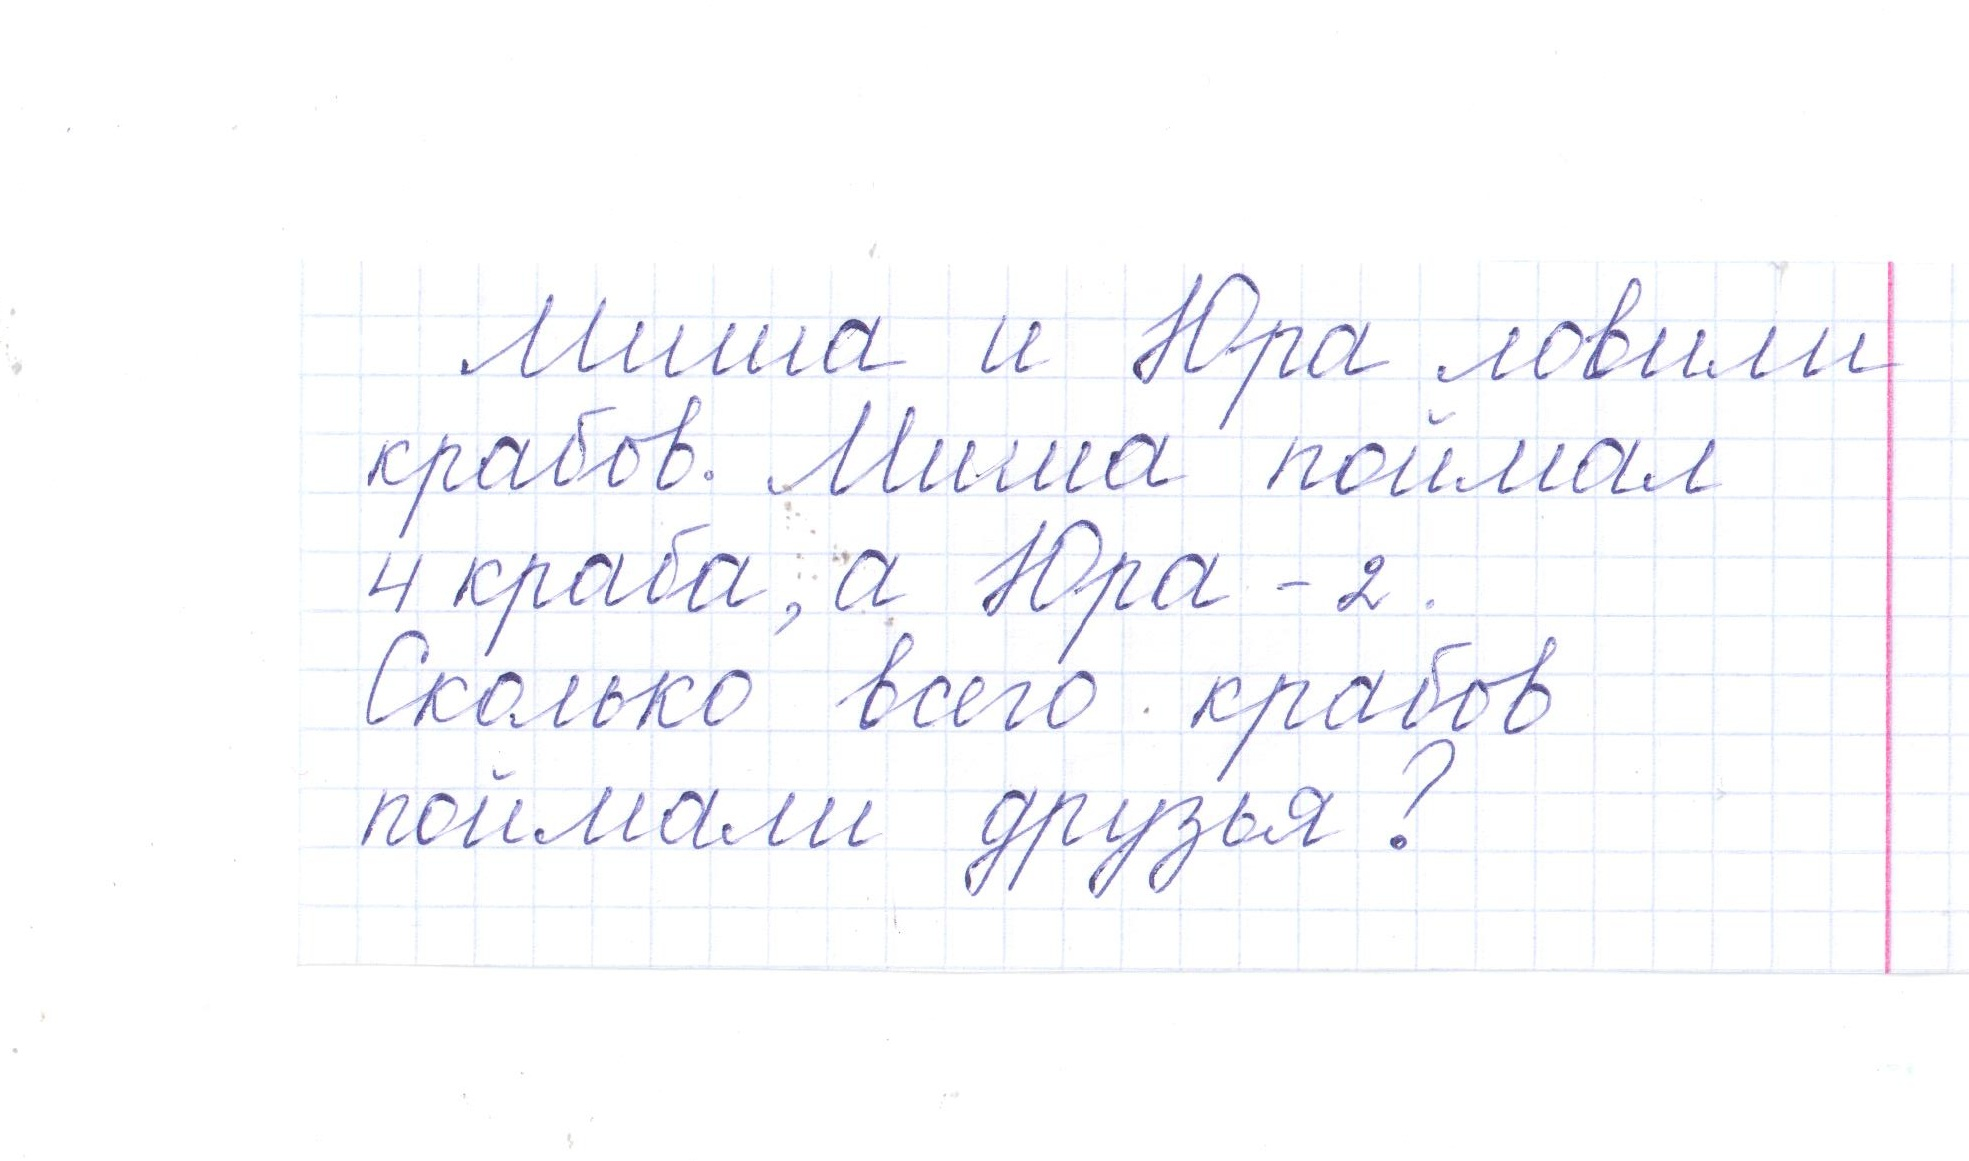 Миша и Юра ловили
крабов. Миша поймал
4 краба, а Юра - 2.
Сколько всего крабов
поймали друзья?